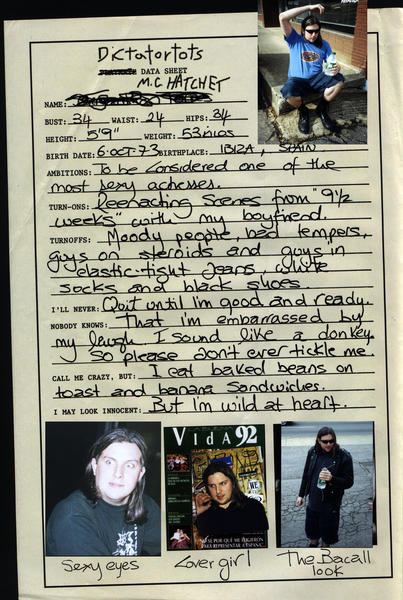 Dictatortots
DATA SHEET
M.C. HATCHET
NAME:
BUST: 34 WAIST: 24 HIPS: 34
HEIGHT: 5'9" WEIGHT: 53 kilos
BIRTH DATE: 6·OCT·73 BIRTHPLACE: IBIZA, SPAIN
AMBITIONS: To be considered one of the
most sexy actresses.
TURN-ONS: Reenacting scenes from "9½
weeks" with my boyfriend.
TURNOFFS: Moody people, bad tempers,
guys on steroids and guys in
elastic-tight jeans, white
socks and black shoes.
I'LL NEVER: Quit until I'm good and ready.
NOBODY KNOWS: That I'm embarrassed by
my laugh I sound like a donkey.
So please don't ever tickle me.
CALL ME CRAZY, BUT: I eat baked beans on
toast and banana sandwiches.
I MAY LOOK INNOCENT: But I'm wild at heart.
VIdA 92
WE
¿SABES POR QUÉ ME ELIGIERON
PARA REPRESENTAR A ESPAÑA?
Sexy eyes
Cover girl
The Bacall
look